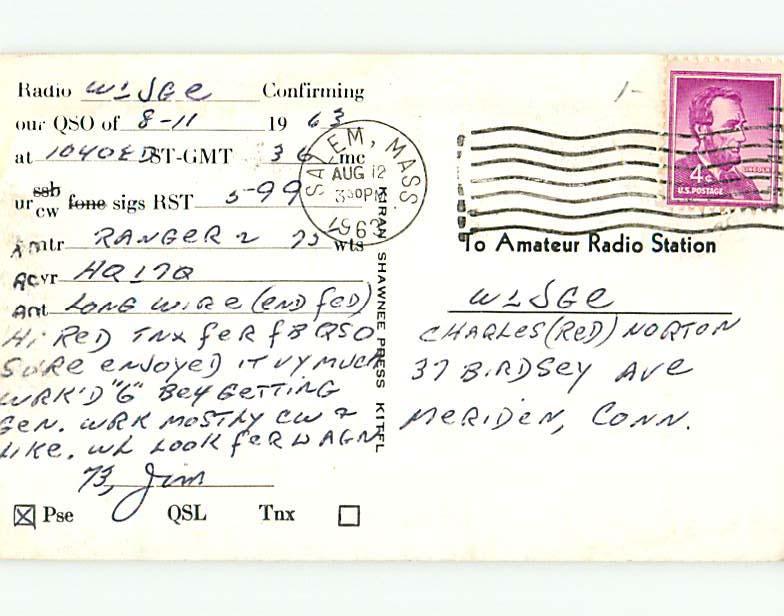 Radio W1JGE Confirming
our QSO of 8-11 1963
at 1040 EDST-GMT 3.6 mc
ur ssb cw fone sigs RST 5-99
Xmtr RANGER 2 75 wts
Rcvr HQ170
Ant LONG WIRE (END FED)
Hi RED TNX FER FB QSO
SURE ENJOYED IT VY MUCH
WRK'D "G" BE4 GETTING
GEN. WRK MOSTLY CW &
LIKE. WL LOOK FER U AGN
73, Jim
☒ Pse QSL Tnx ☐
KIRAN SHAWNEE PRESS KITFL
SALEM, MASS.
AUG 12
330 PM
1963
1-
4¢
LINCOLN
U.S. POSTAGE
To Amateur Radio Station
W1JGE
CHARLES (RED) NORTON
37 BIRDSEY AVE
MERIDEN, CONN.